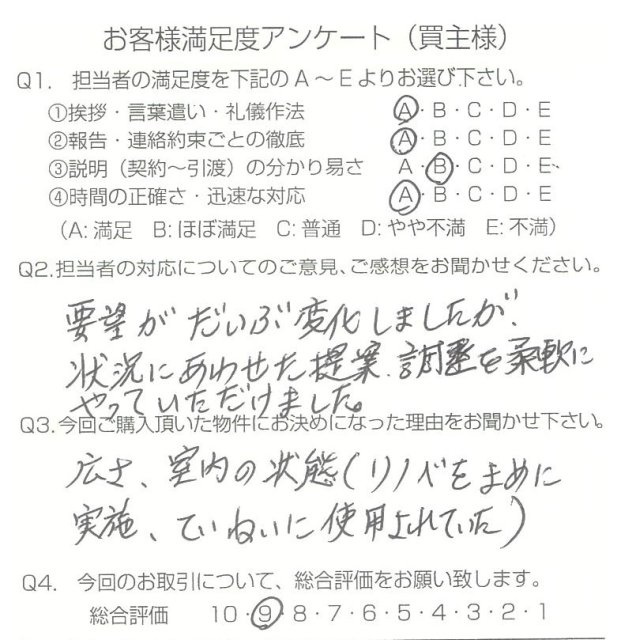 お客様満足度アンケート（買主様）
Q1. 担当者の満足度を下記のA～Eよりお選び下さい。
①挨拶・言葉遣い・礼儀作法 A・B・C・D・E
②報告・連絡約束ごとの徹底 A・B・C・D・E
③説明（契約～引渡）の分かり易さ A・B・C・D・E
④時間の正確さ・迅速な対応 A・B・C・D・E
（A: 満足 B: ほぼ満足 C: 普通 D: やや不満 E: 不満）
Q2.担当者の対応についてのご意見、ご感想をお聞かせください。
要望がだいぶ変化しましたが、
状況にあわせた提案、調整を柔軟に
やっていただけました。
Q3.今回ご購入頂いた物件にお決めになった理由をお聞かせ下さい。
広さ、室内の状態（リノベをまめに
実施、ていねいに使用されていた）
Q4. 今回のお取引について、総合評価をお願い致します。
総合評価 10・9・8・7・6・5・4・3・2・1